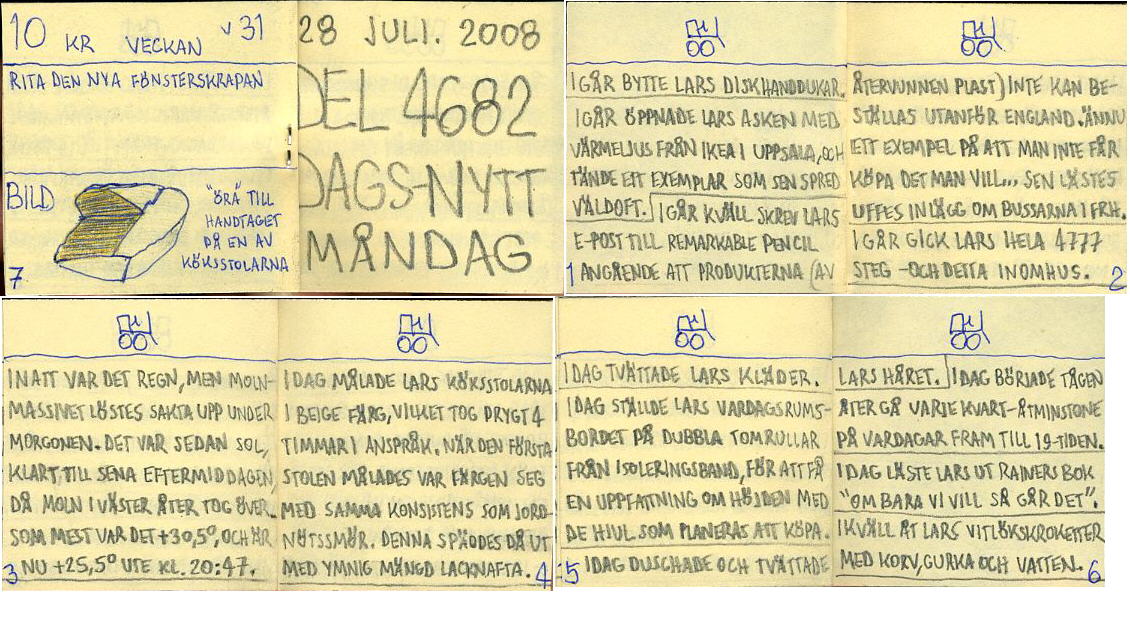 10 KR VECKAN V 31
RITA DEN NYA FÖNSTERSKRAPAN
BILD
"ÖRÅ" TILL
HANDTAGET
PÅ EN AV
KÖKSSTOLARNA
7
28 JULI. 2008
DEL 4682
DAGS-NYTT
MÅNDAG
I GÅR BYTTE LARS DISKHANDDUKAR.
I GÅR ÖPPNADE LARS ASKEN MED
VÄRMELJUS FRÅN IKEA I UPPSALA, OCH
TÄNDE ETT EXEMPLAR SOM SEN SPRED
VÄLDOFT. I GÅR KVÄLL SKREV LARS
E-POST TILL REMARKABLE PENCIL
1 ANGÅENDE ATT PRODUKTERNA (AV
ÅTERVUNNEN PLAST) INTE KAN BE-
STÄLLAS UTANFÖR ENGLAND. ÄNNU
ETT EXEMPEL PÅ ATT MAN INTE FÅR
KÖPA DET MAN VILL... SEN LÄSTES
UFFES INLÄGG OM BUSSARNA I FRH.
I GÅR GICK LARS HELA 4777
STEG - OCH DETTA INOMHUS. 2
I NATT VAR DET REGN, MEN MOLN-
MASSIVET LÖSTES SAKTA UPP UNDER
MORGONEN. DET VAR SEDAN SOL,
KLART, TILL SENA EFTERMIDDAGEN,
DÅ MOLN I VÄSTER ÅTER TOG ÖVER.
SOM MEST VAR DET +30,5°, OCH ÄR
3 NU +25,5° UTE KL. 20:47.
I DAG MÅLADE LARS KÖKSSTOLARNA
I BEIGE FÄRG, VILKET TOG DRYGT 4
TIMMAR I ANSPRÅK. NÄR DEN FÖRSTA
STOLEN MÅLADES VAR FÄRGEN SEG
MED SAMMA KONSISTENS SOM JORD-
NÖTSSMÖR. DENNA SPÄDDES DÅ UT
MED YMNIG MÄNGD LACKNAFTA. 4
I DAG TVÄTTADE LARS KLÄDER.
I DAG STÄLLDE LARS VARDAGSRUMS-
BORDET PÅ DUBBLA TOMRULLAR
FRÅN ISOLERINGSBAND, FÖR ATT FÅ
EN UPPFATNING OM HÖJDEN MED
DE HJUL SOM PLANERAS ATT KÖPA.
5 I DAG DUSCHADE OCH TVÄTTADE
LARS HÅRET. I DAG BÖRJADE TÅGEN
ÅTER GÅ VARJE KVART - ÅTMINSTONE
PÅ VARDAGAR FRAM TILL 19-TIDEN.
I DAG LÄSTE LARS UT RAINERS BOK
"OM BARA VI VILL SÅ GÅR DET".
I KVÄLL ÅT LARS VITLÖKSKROKETTER
MED KORV, GURKA OCH VATTEN. 6